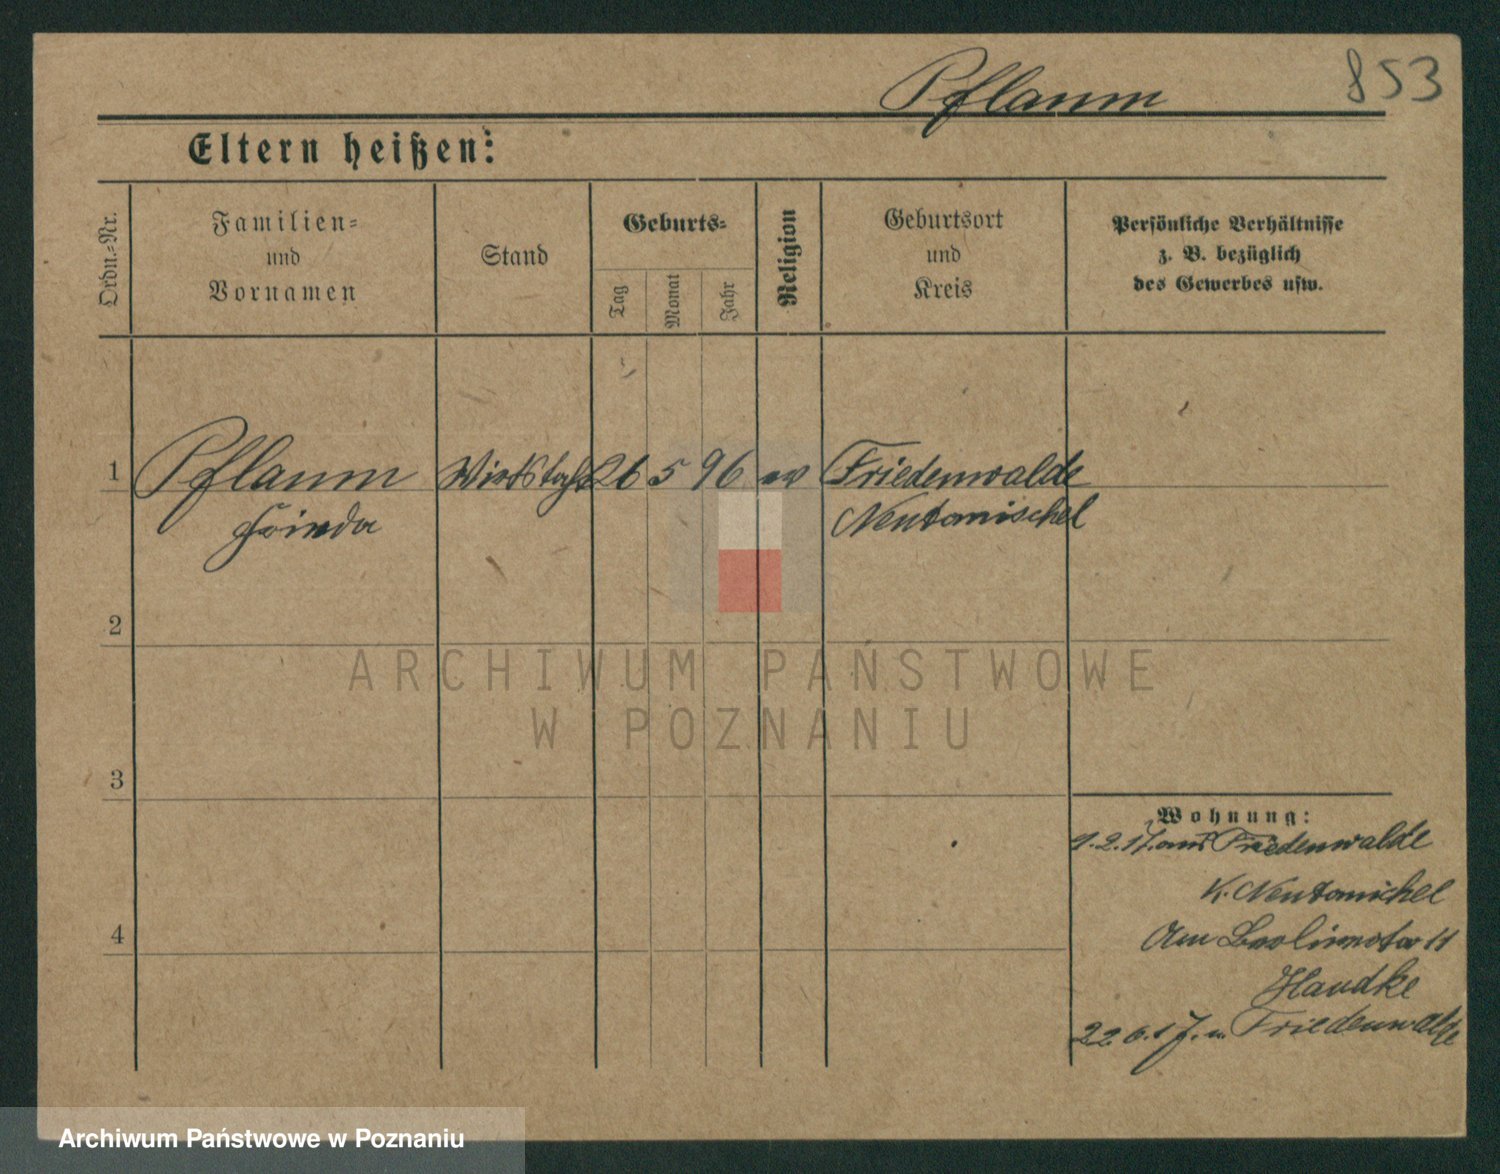 Pflaum
853
Eltern heißen:
Ordn.-Nr.
Familien-
und
Vornamen
Stand
Geburts-
Tag
Monat
Jahr
Religion
Geburtsort
und
Kreis
Persönliche Verhältnisse
z. B. bezüglich
des Gewerbes usw.
1 Pflaum Wirtstocht 26 5 96 ev Friedenwalde
Frieda Neutomischel
2
3
4
Wohnung:
1.2.17. aus Friedenwalde
K. Neutomichel
Am 11
Handke
22.6.17. n. Friedenwalde
ARCHIWUM PAŃSTWOWE
W POZNANIU
Archiwum Państwowe w Poznaniu